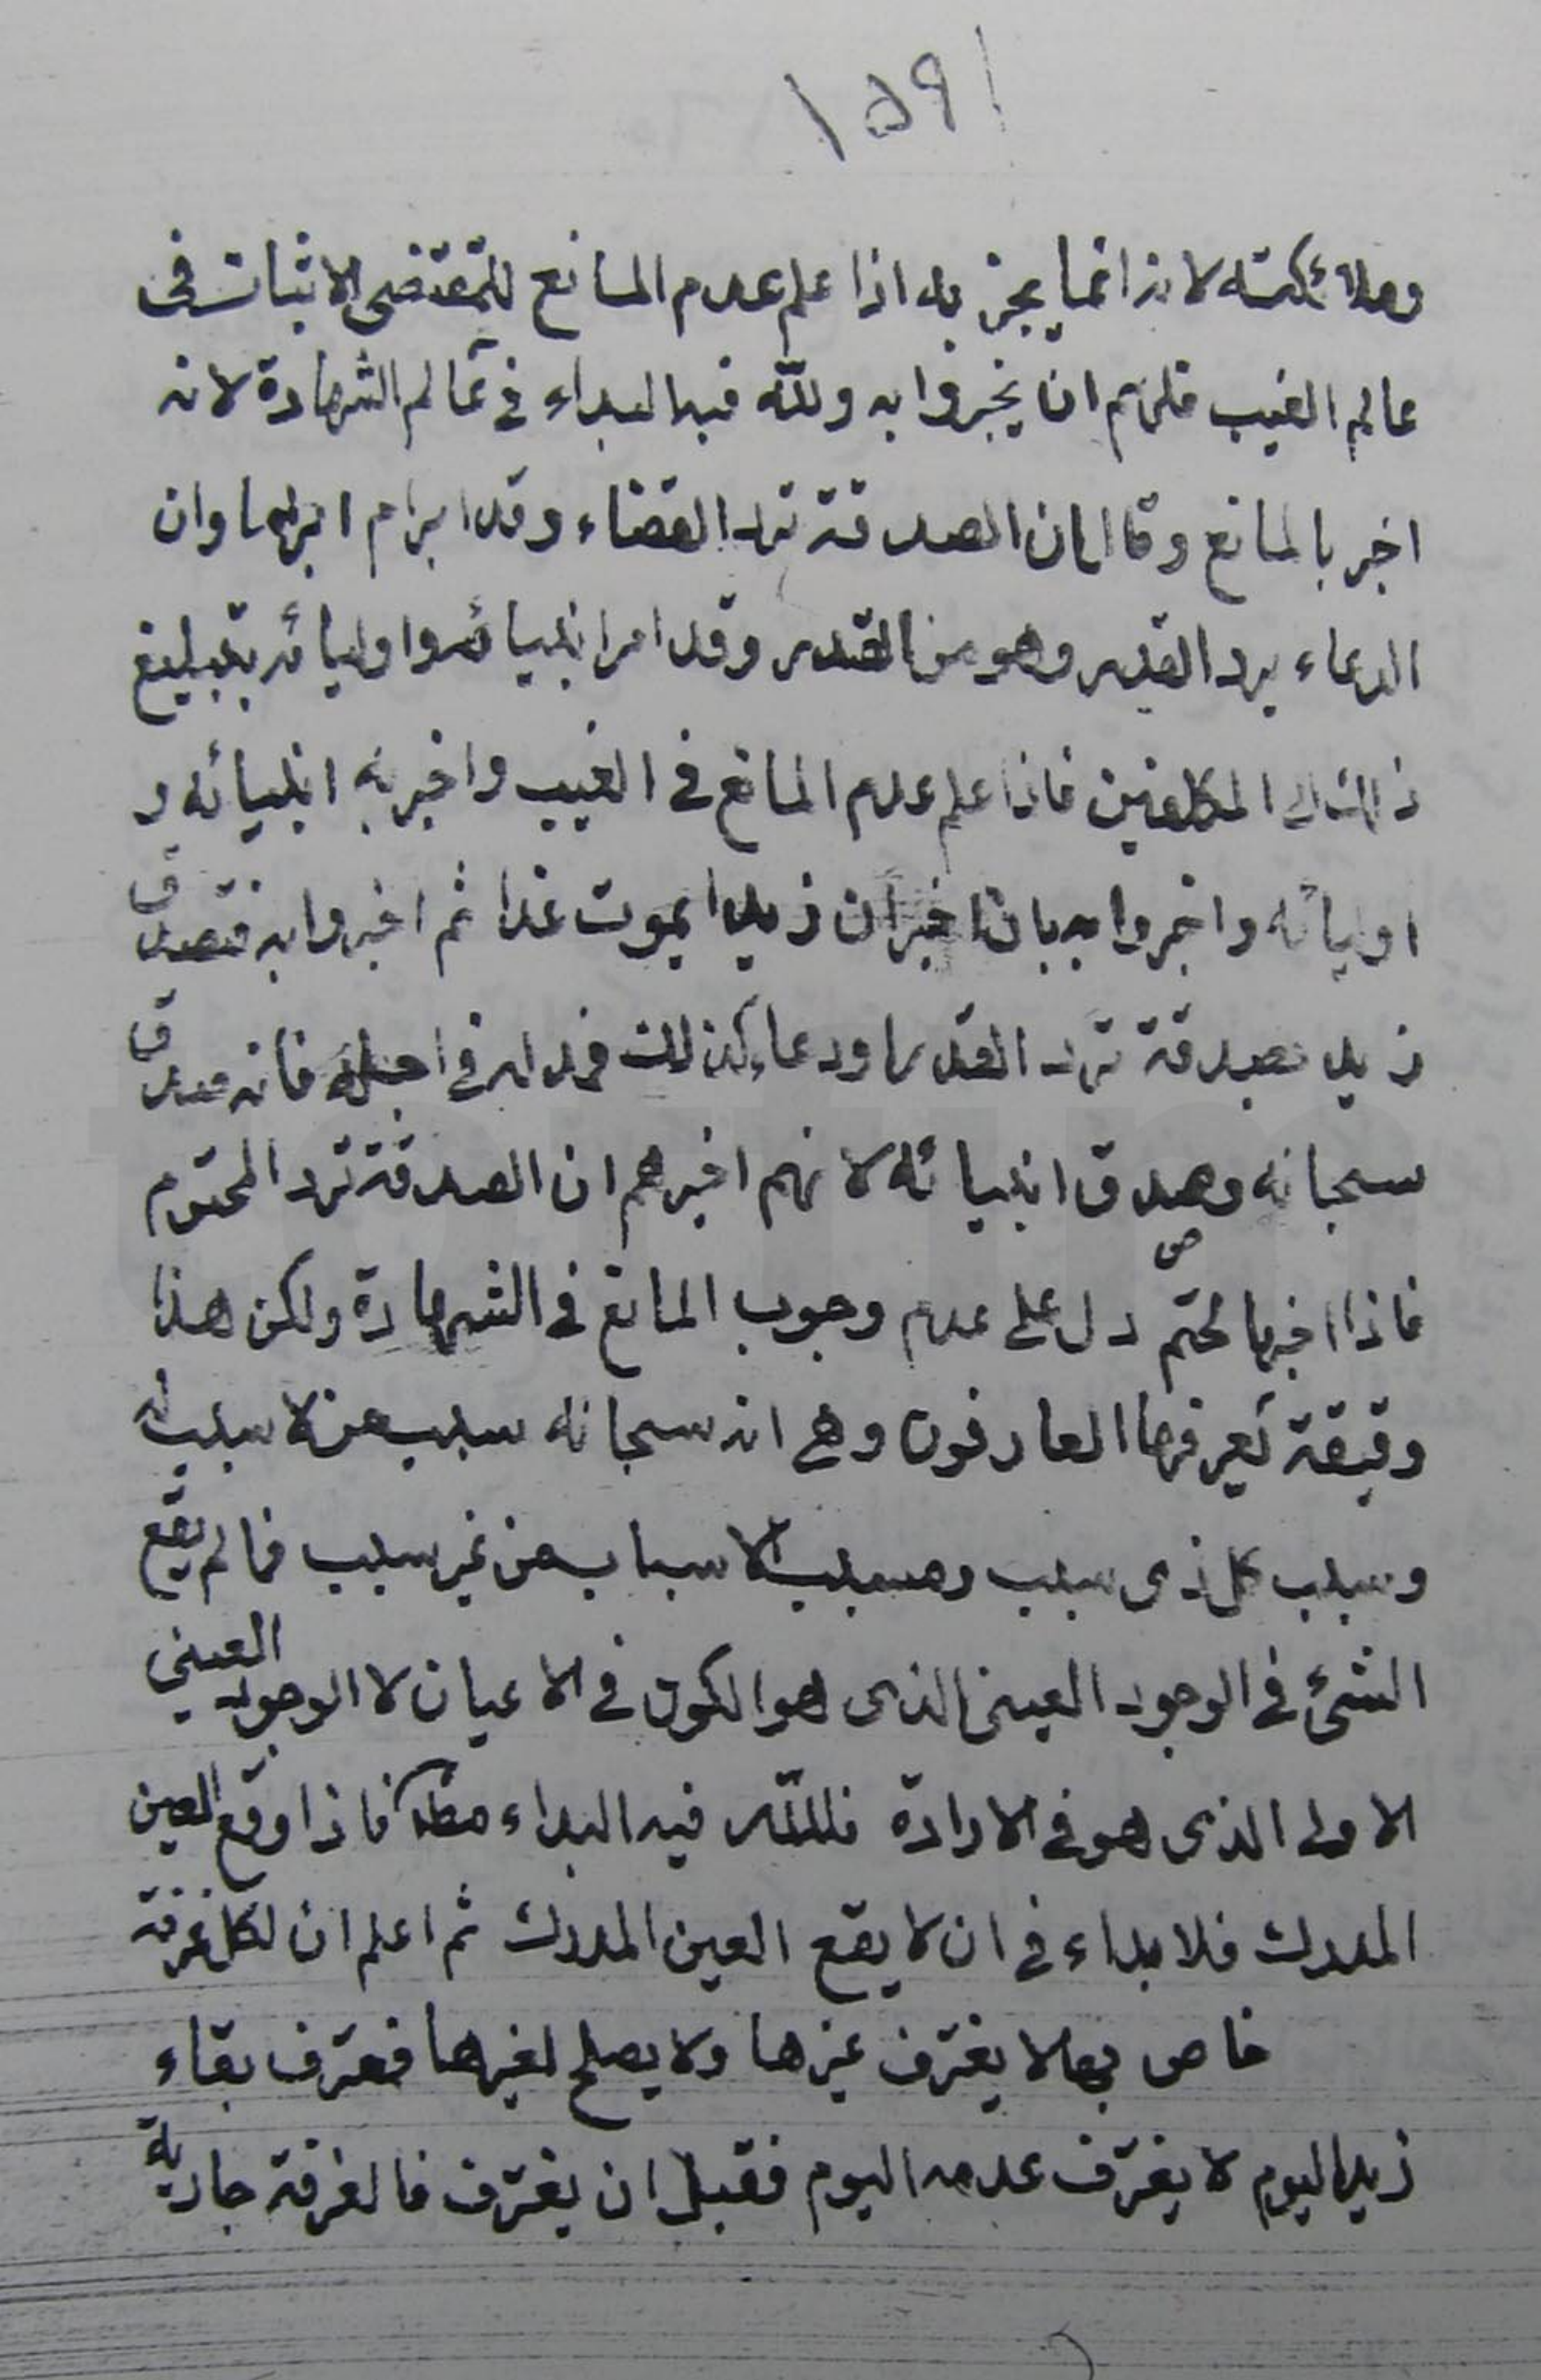 ١٥٩١
وملائكته لانه انما يخبر به اذا علم عدم المانع للمقتضى الاثبات فى
عالم الغيب فلهم ان يخبروا به ولله فيه البداء فى عالم الشهادة لانه
اخبر بالمانع وقال ان الصدقة ترد القضاء وقد ابرم ابراما وان
الدعاء يرد القدر وهو من القدر وقد امر انبيائه واوليائه بتبليغ
ذلك الى المكلفين فاذا علم عدم المانع فى الغيب واخبر به انبيائه و
اوليائه واخبروا به بان اخبر ان زيدا يموت غدا ثم اخبروا به فتصدق
زيد بصدقة ترد القدر او دعا كذلك فمد له فى اجله فانه صدق
سبحانه وصدق انبيائه لانهم اخبرهم ان الصدقة ترد المحتوم
فاذا اخبر بالحتم دل على عدم وجوب المانع فى الشهادة ولكن هذا
دقيقة يعرفها العارفون وهى انه سبحانه سبب من لا سبب له
وسبب كل ذى سبب ومسبب الاسباب من غير سبب فما لم يقع
الشئ فى الوجود العينى الذى هو الكون فى الاعيان لا الوجود العينى
الاولى الذى هو فى الارادة فلله فيه البداء مط فاذا وقع العين
المدرك فلا بداء فى ان لا يقع العين المدرك ثم اعلم ان لكل غرفة
خاص بها لا يغترف غيرها ولا يصلح لغيرها فمغترف بقاء
زيد اليوم لا يغترف عدمه اليوم فقبل ان يغترف فالغرفة جارية